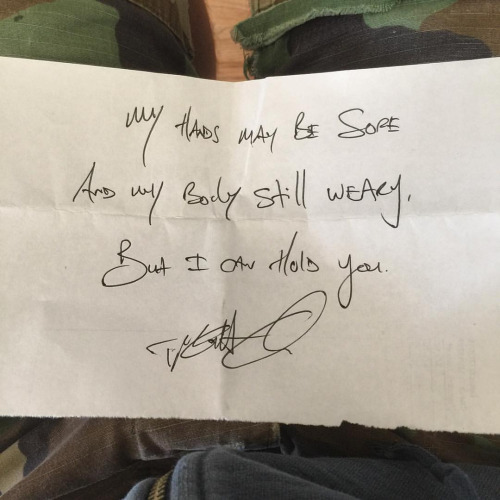 My HANDS MAY BE SORE
AND my Body Still WEARy.
But I CAN Hold you.